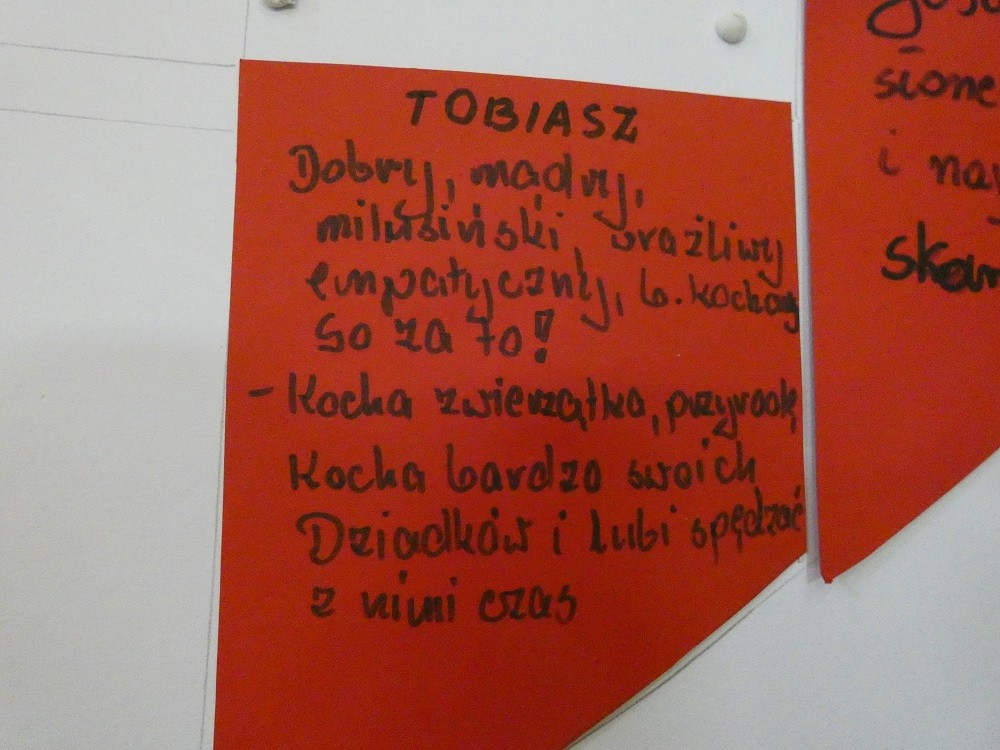 TOBIASZ
Dobry, mądry,
milusiński, wrażliwy
empatyczny, b. kochamy
Go za to!
- Kocha zwierzątka, przyrodę
Kocha bardzo swoich
Dziadków i lubi spędzać
z nimi czas
sione
i